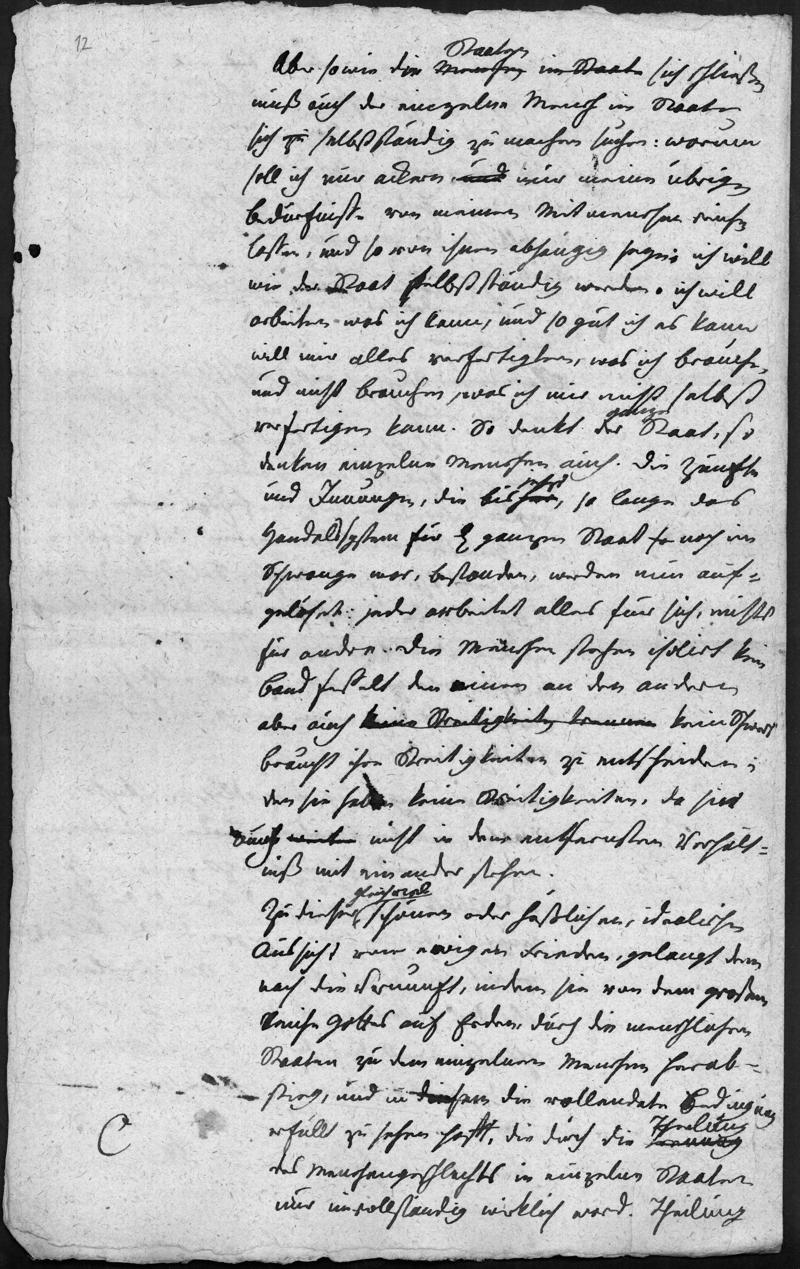 12
Staaten
Aber so wie die Menschen im Staate sich schließen
muß auch der einzelne Mensch im Staate
sich zu selbstständig zu machen suchen: warum
soll ich nur ackern und mir meine übrigen
Bedürfnisse von meinen Mitmenschen
lassen, und so von ihnen abhängig seyn; ich will
wie der Staat selbstständig werden. ich will
arbeiten was ich kann, und so gut ich es kann
will mir alles verfertigen, was ich brauche,
und nicht brauchen, was ich mir nicht selbst
verfertigen kann. So denkt der ganze Staat, so
denken einzelne Menschen auch. Die Zünfte
und Innungen, die bisher, so lange das
Handelssystem für ganzen Staat noch im
Schwange war, bestanden, werden nun auf-
gelöset: jeder arbeitet alles für sich, nichts
für andre. Die Menschen stehen isolirt kein
Band fesselt den einen an den andern
aber auch keine Streitigkeiten kennen kein Schwert
braucht ihre Streitigkeiten zu entscheiden;
den sie haben keine Streitigkeiten, da sie
auch nicht in dem entferntesten Verhält-
niß mit einander stehen.
gleichviel
Zu dieser, schönen oder häßlichen, idealischen
Aussicht vom ewigen Frieden, gelangt denn
nach die Vernunft, indem sie von dem großen
Reiche Gottes auf Erden, durch die menschlichen
Staaten zu dem einzelnen Menschen herab-
stieg, und in diesem die vollendete Bedingung
erfüllt zu sehen hofft, die durch die Theilung
des Menschengeschlechts in einzelne Staaten
nur unvollständig wirklich ward. Theilung
C